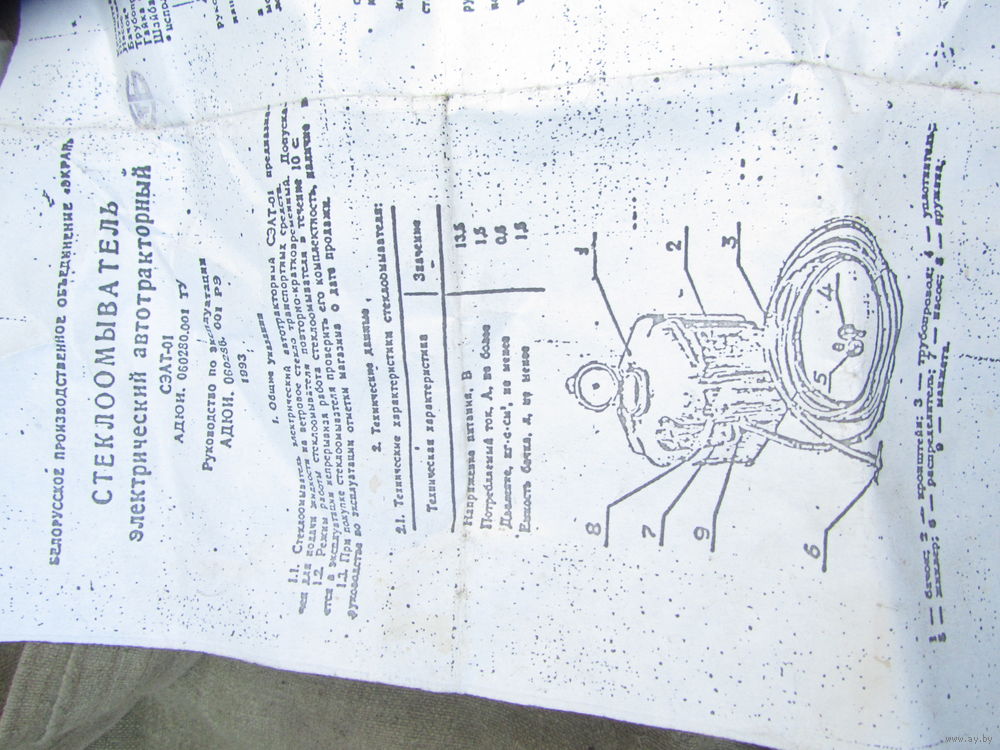 БЕЛОРУССКОЕ ПРОИЗВОДСТВЕННОЕ ОБЪЕДИНЕНИЕ «ЭКРАН»
СТЕКЛООМЫВАТЕЛЬ
ЭЛЕКТРИЧЕСКИЙ АВТОТРАКТОРНЫЙ
СЭАТ-01
АДЮИ. 060280.001 ТУ
Руководство по эксплуатации
АДЮИ. 001 РЭ
1993
1. Общие указания
1.1. Стеклоомыватель электрический автотракторный СЭАТ-01 предназна-
чен для подачи жидкости на ветровое стекло транспортных средств.
1.2. Режим работы стеклоомывателя повторно-кратковременный. Допуска-
ется в эксплуатации непрерывная работа стеклоомывателя в течение 10 с.
1.3. При покупке стеклоомывателя проверить его комплектность, наличие в
руководстве по эксплуатации отметки магазина о дате продажи.
2. Технические данные
2.1. Технические характеристики стеклоомывателя:
Техническая характеристика Значение
Напряжение питания, В 13,5
Потребляемый ток, А, не более 1,5
Давление, кг·с·см², не менее 0,6
Емкость бачка, л, не менее 1,5
1
2
3
4
5
6
7
8
9
1 — бачок; 2 — кронштейн; 3 — трубопровод; 4 — уплотнитель;
5 — жиклер; 6 — распределитель; 7 — насос; 8 — пружина;
9 — манжета
www.ay.by